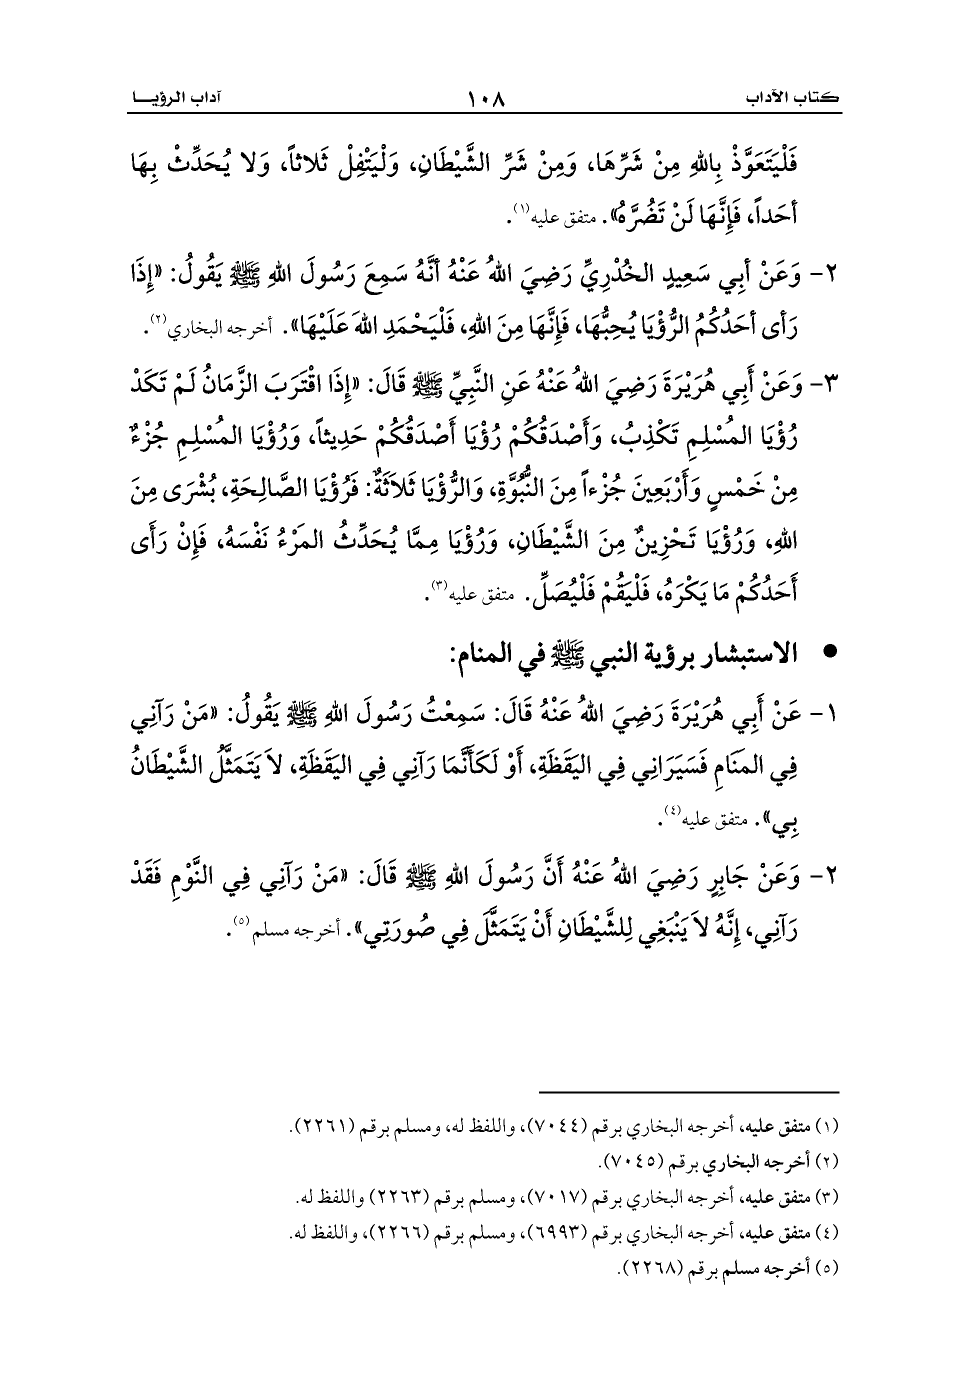 كتاب الآداب ١٠٨ آداب الرؤيـــا
فَلْيَتَعَوَّذْ بِاللهِ مِنْ شَرِّهَا، وَمِنْ شَرِّ الشَّيْطَانِ، وَلْيَتْفِلْ ثَلاثاً، وَلا يُحَدِّثْ بِهَا
أحَداً، فَإِنَّهَا لَنْ تَضُرَّهُ». متفق عليه(١).
٢- وَعَنْ أبِي سَعِيدٍ الخُدْرِيِّ رَضِيَ اللهُ عَنْهُ أنَّهُ سَمِعَ رَسُولَ اللهِ ﷺ يَقُولُ: «إِذَا
رَأى أحَدُكُمُ الرُّؤْيَا يُحِبُّهَا، فَإِنَّهَا مِنَ اللهِ، فَلْيَحْمَدِ اللهَ عَلَيْهَا». أخرجه البخاري(٢).
٣- وَعَنْ أَبِي هُرَيْرَةَ رَضِيَ اللهُ عَنْهُ عَنِ النَّبِيِّ ﷺ قَالَ: «إِذَا اقْتَرَبَ الزَّمَانُ لَمْ تَكَدْ
رُؤْيَا المُسْلِمِ تَكْذِبُ، وَأَصْدَقُكُمْ رُؤْيَا أَصْدَقُكُمْ حَدِيثاً، وَرُؤْيَا المُسْلِمِ جُزْءٌ
مِنْ خَمْسٍ وَأَرْبَعِينَ جُزْءاً مِنَ النُّبُوَّةِ، وَالرُّؤْيَا ثَلاَثَةٌ: فَرُؤْيَا الصَّالِحَةِ، بُشْرَى مِنَ
اللهِ، وَرُؤْيَا تَحْزِينٌ مِنَ الشَّيْطَانِ، وَرُؤْيَا مِمَّا يُحَدِّثُ المَرْءُ نَفْسَهُ، فَإِنْ رَأَى
أَحَدُكُمْ مَا يَكْرَهُ، فَلْيَقُمْ فَلْيُصَلِّ. متفق عليه(٣).
● الاستبشار برؤية النبي ﷺ في المنام:
١- عَنْ أَبِي هُرَيْرَةَ رَضِيَ اللهُ عَنْهُ قَالَ: سَمِعْتُ رَسُولَ اللهِ ﷺ يَقُولُ: «مَنْ رَآنِي
فِي المَنَامِ فَسَيَرَانِي فِي اليَقَظَةِ، أَوْ لَكَأَنَّمَا رَآنِي فِي اليَقَظَةِ، لاَ يَتَمَثَّلُ الشَّيْطَانُ
بِي». متفق عليه(٤).
٢- وَعَنْ جَابِرٍ رَضِيَ اللهُ عَنْهُ أَنَّ رَسُولَ اللهِ ﷺ قَالَ: «مَنْ رَآنِي فِي النَّوْمِ فَقَدْ
رَآنِي، إِنَّهُ لاَ يَنْبَغِي لِلشَّيْطَانِ أَنْ يَتَمَثَّلَ فِي صُورَتِي». أخرجه مسلم(٥).
(١) متفق عليه، أخرجه البخاري برقم (٧٠٤٤)، واللفظ له، ومسلم برقم (٢٢٦١).
(٢) أخرجه البخاري برقم (٧٠٤٥).
(٣) متفق عليه، أخرجه البخاري برقم (٧٠١٧)، ومسلم برقم (٢٢٦٣) واللفظ له.
(٤) متفق عليه، أخرجه البخاري برقم (٦٩٩٣)، ومسلم برقم (٢٢٦٦)، واللفظ له.
(٥) أخرجه مسلم برقم (٢٢٦٨).